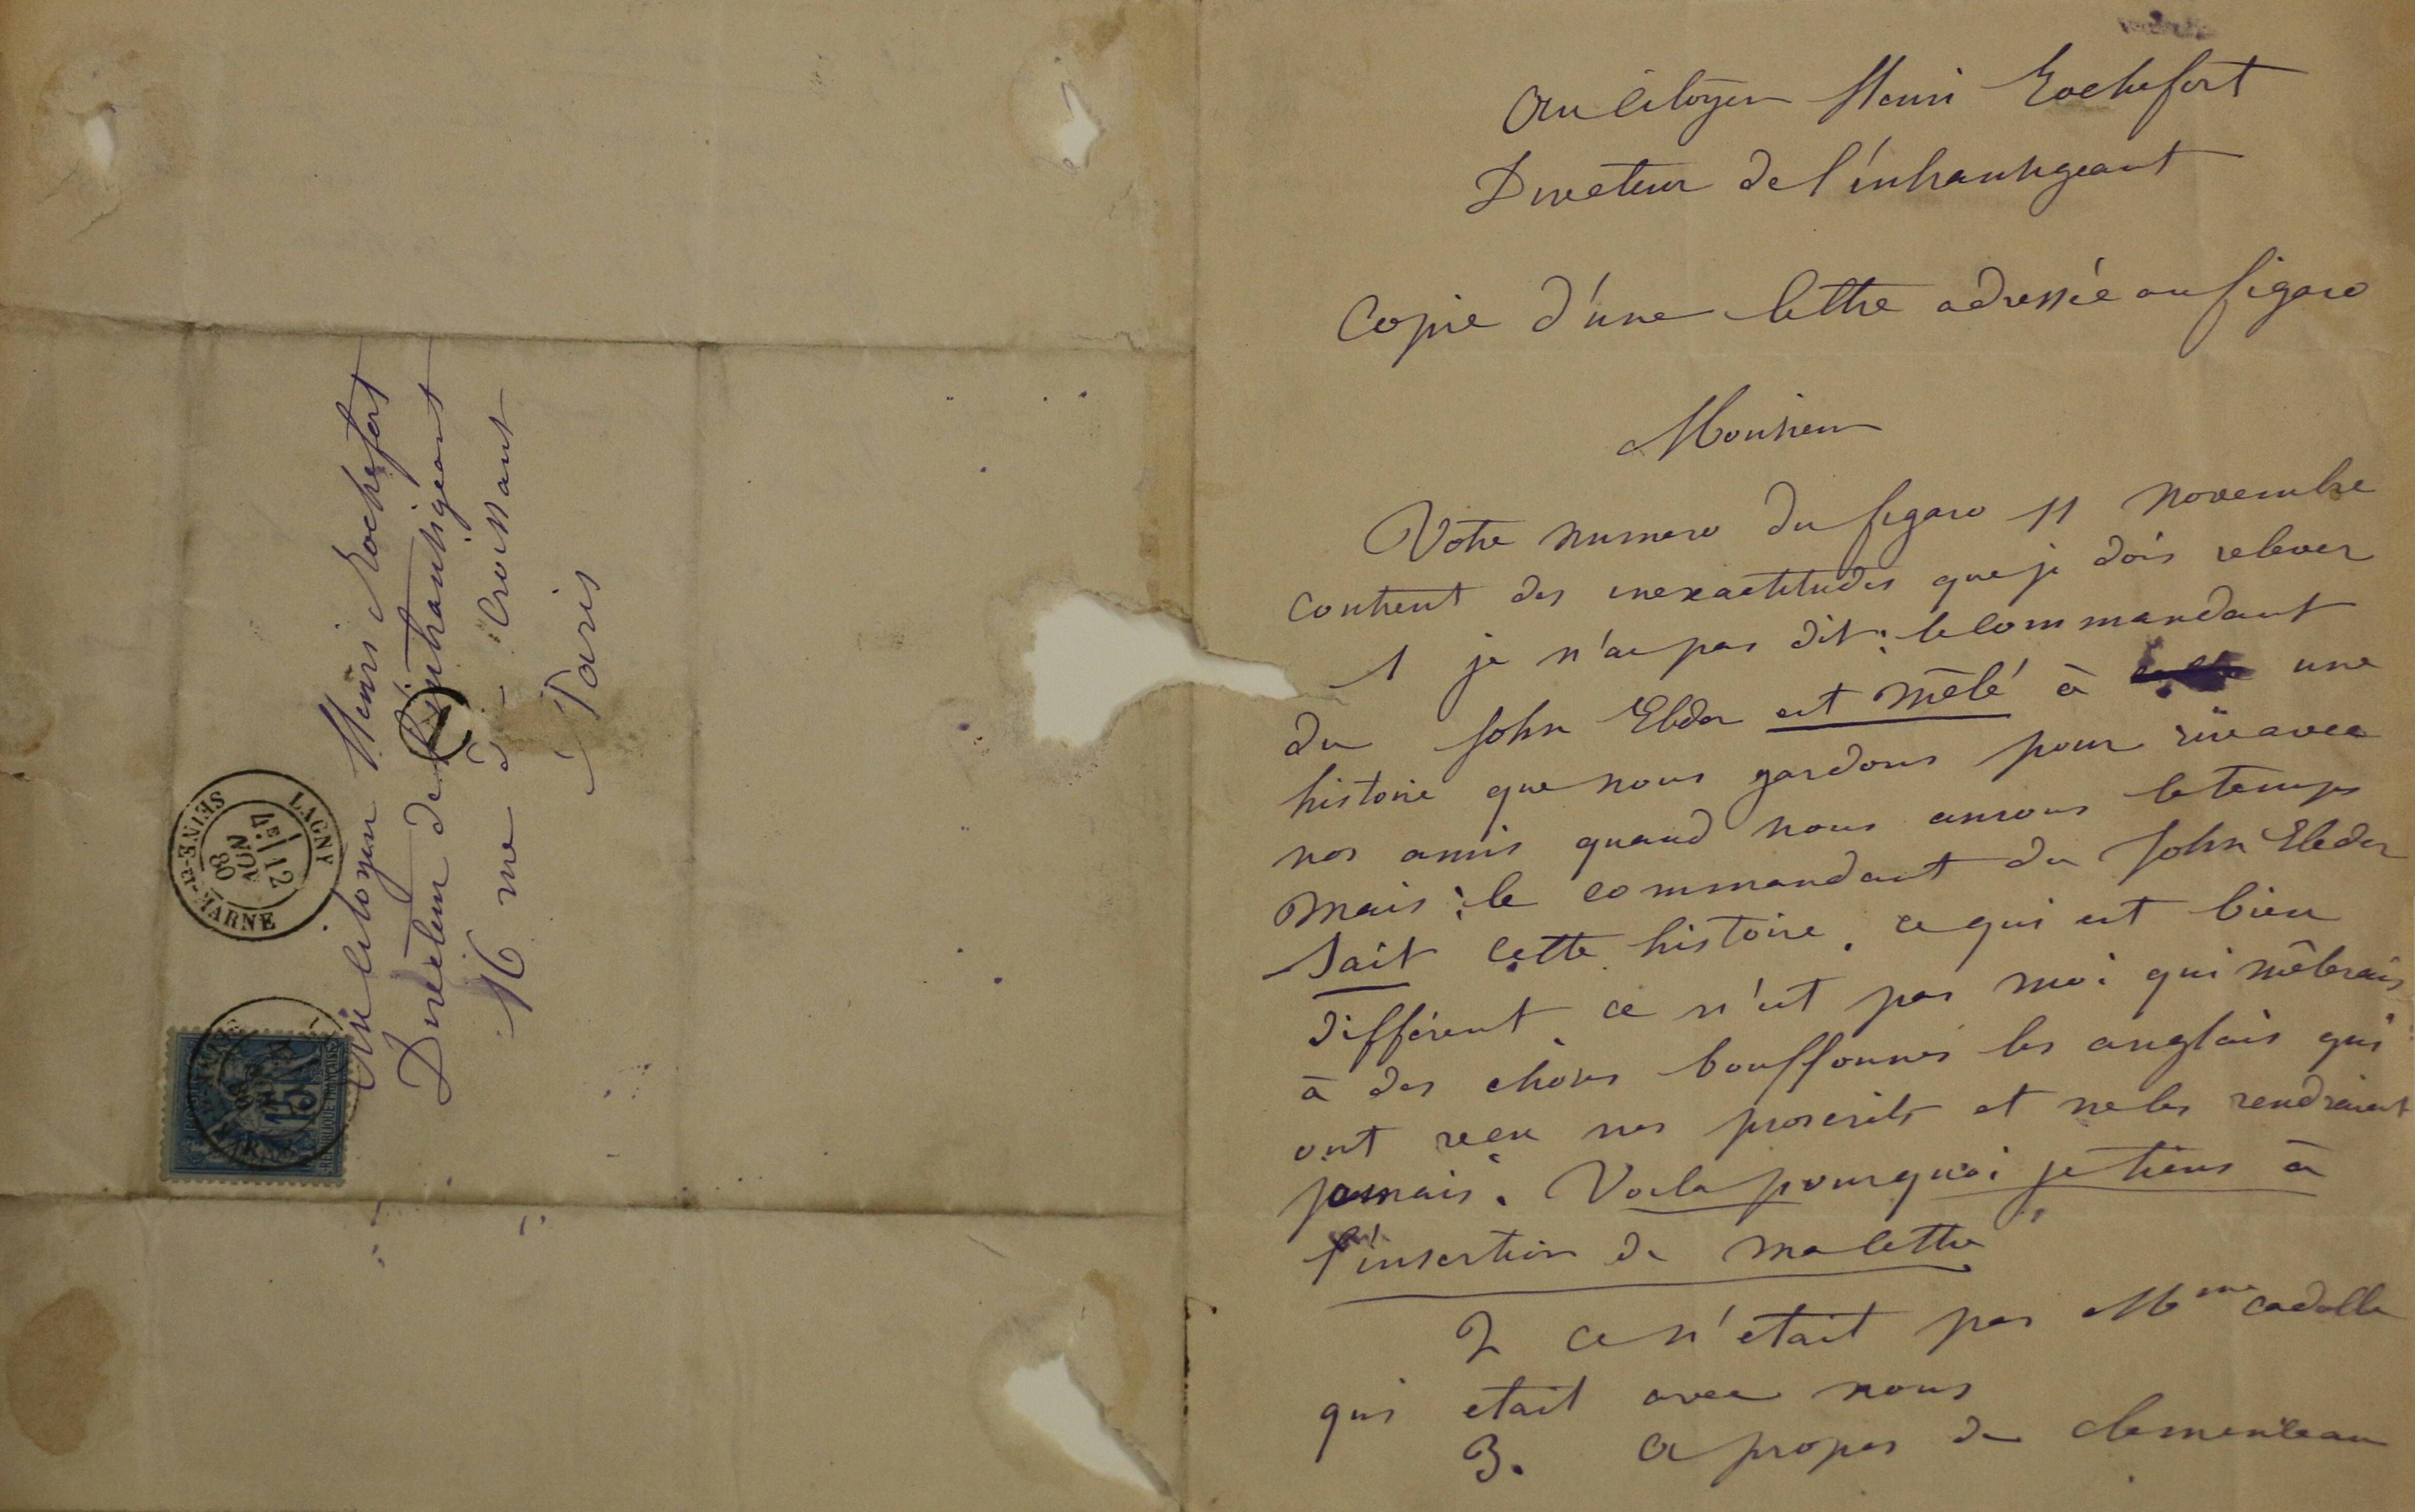 Au citoyen Henri Rochefort
Directeur de l'intransigeant
16 rue du Croissant
Paris
LAGNY
4E 12
NOV
80
SEINE-ET-MARNE
15
REPUBLIQUE FRANÇAISE
Au citoyen Henri Rochefort
Directeur de l'intransigeant
Copie d'une lettre adressée au figaro
Monsieur
Votre numero du figaro 11 novembre
contient des inexactitudes que je dois relever
1 je n'ai pas dit : le commandant
du John Elder est mêlé à une
histoire que nous gardons pour rire avec
nos amis quand nous aurons le temps
mais : le commandant du John Elder
sait cette histoire. ce qui est bien
différent ce n'est pas moi qui mêlerais
à des choses bouffonnes les anglais qui
ont recu nos proscrits et ne les rendraient
jamais. Voila pourquoi je tiens à
l'insertion de ma lettre
2 ce n'etait pas Mme cadolle
qui etait avec nous
3. a propos de clemenceau